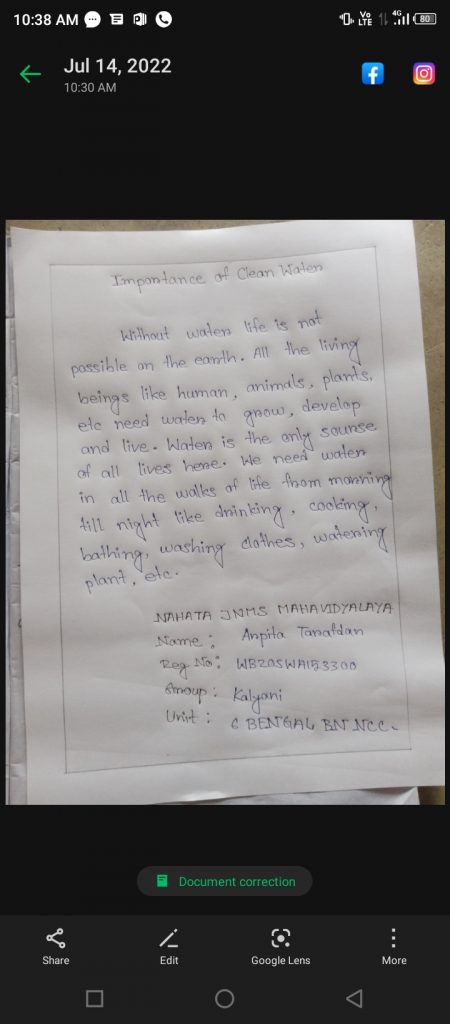 10:38 AM
Vo LTE 4G 80
Jul 14, 2022
10:30 AM
Importance of Clean Water
Without water life is not
possible on the earth. All the living
beings like human, animals, plants,
etc need water to grow, develop
and live. Water is the only sourse
of all lives here. We need water
in all the walks of life from morning
till night like drinking, cooking,
bathing, washing clothes, watering
plant, etc.
NAHATA JNMS MAHAVIDYALAYA
Name: Arpita Tarafdar
Reg No:
Group: Kalyani
Unit: 6 BENGAL BN NCC.
Document correction
Share Edit Google Lens More